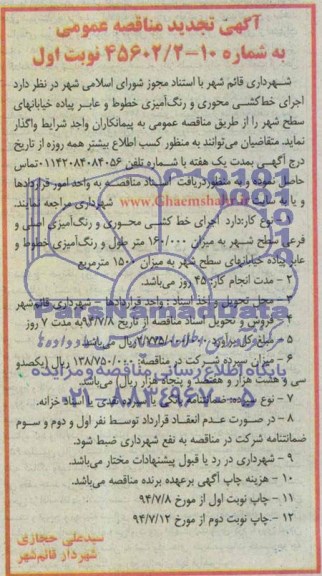 آگهی تجدید مناقصه عمومی
به شماره ۱۰-۴۵۶۰۲/۲ نوبت اول
شهرداری قائم شهر با استناد مجوز شورای اسلامی شهر در نظر دارد
اجرای خط‌کشی محوری و رنگ‌آمیزی خطوط و عابر پیاده خیابانهای
سطح شهر را از طریق مناقصه عمومی به پیمانکاران واجد شرایط واگذار
نماید. متقاضیان می‌توانند به منظور کسب اطلاع بیشتر همه روزه از تاریخ
درج آگهی بمدت یک هفته با شماره تلفن تماس
حاصل نموده و به منظور دریافت اسناد مناقصه به واحد امور قراردادها
و یا به سایت www.Ghaemshahr.ir شهرداری مراجعه نمایند.
۱ - نوع کار: اجرای خط کشی محوری و رنگ‌آمیزی اصلی و
فرعی سطح شهر به میزان ۱۶۰/۰۰۰ متر طول و رنگ‌آمیزی خطوط و
عابر پیاده خیابانهای سطح شهر به میزان ۱۵۰۰ مترمربع
۲ - مدت انجام کار: ۴۵ روز می‌باشد.
۳ - محل تحویل و اخذ اسناد: واحد قراردادها - شهرداری قائم‌شهر
۴ - فروش و تحویل اسناد مناقصه از تاریخ ۹۴/۷/۸ به مدت ۷ روز
۵ - مبلغ کل برآورد ریال می‌باشد.
۶ - میزان سپرده شرکت در مناقصه: ۱۳۸/۷۵۰/۰۰۰ ریال (یکصدو
سی و هشت هزار و هفتصد و پنجاه هزار ریال) می‌باشد.
۷ - نوع سپرده: ضمانتنامه بانکی یا سپرده نقدی یا اسناد خزانه.
۸ - در صورت عدم انعقاد قرارداد توسط نفر اول و دوم و سوم
ضمانتنامه شرکت در مناقصه به نفع شهرداری ضبط شود.
۹ - شهرداری در رد یا قبول پیشنهادات مختار می‌باشد.
۱۰ - هزینه چاپ آگهی برعهده برنده مناقصه می‌باشد.
۱۱ - چاپ نوبت اول از مورخ ۹۴/۷/۸
۱۲ - چاپ نوبت دوم از مورخ ۹۴/۷/۱۲
سیدعلی حجازی
شهردار قائم‌شهر
ParsNamadData
پایگاه اطلاع رسانی مناقصه و مزایده
۰۲۱-۸۸۳۴۹۶۷۰-۵